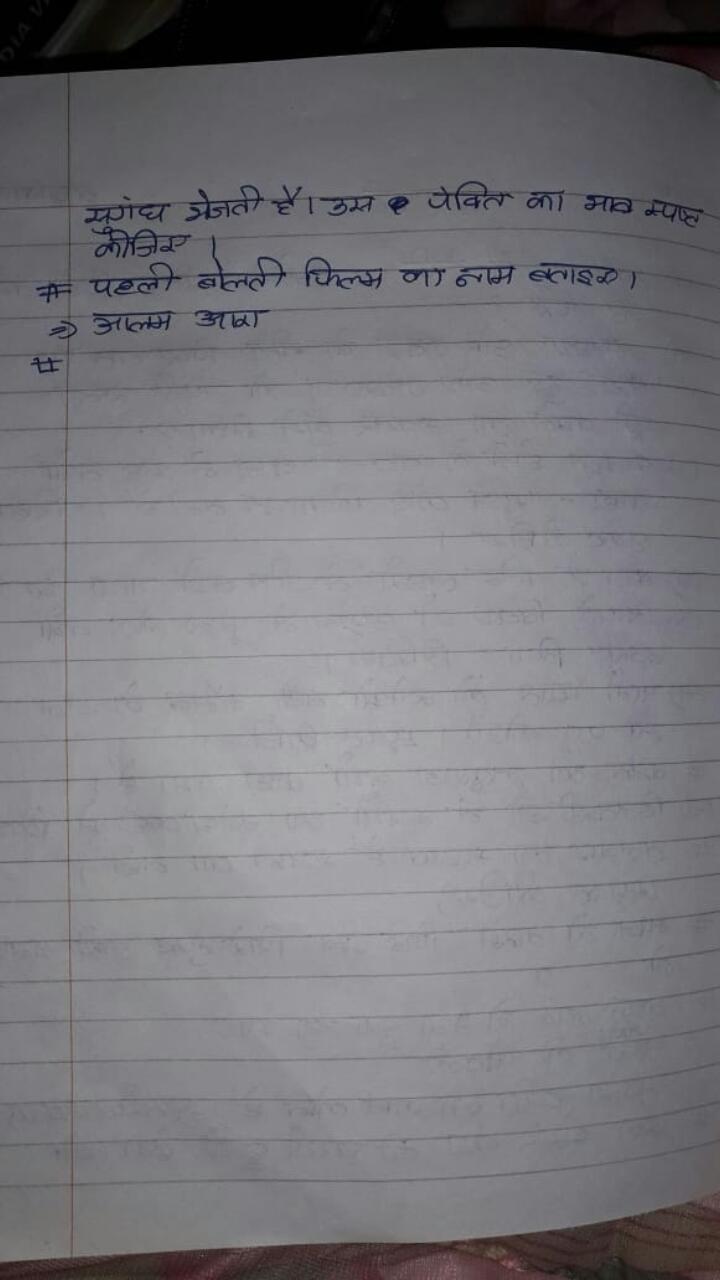 सुगंध भेजती है। उस पंक्ति का भाव स्पष्ट
कीजिए।
# पहली बोलती फिल्म का नाम बताइए।
⇒ आलम आरा
#